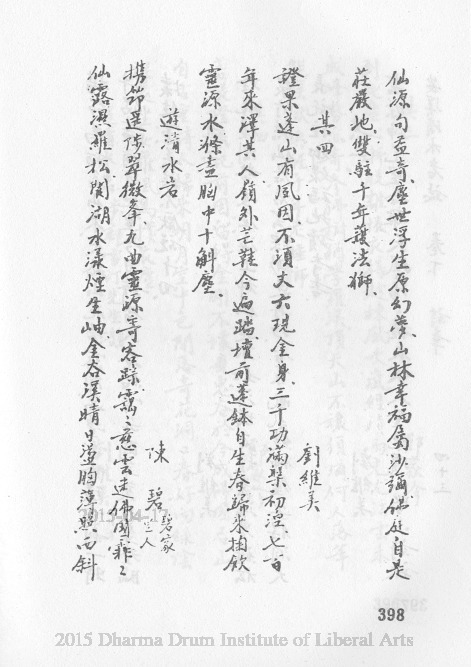 仙源句益奇、塵世浮生原幻夢、山林幸福屬沙彌、佛庭自是
莊嚴地、雙駐千年護法獅、
其四
劉維美
證果蓬山有夙因不須丈六現金身、三千功滿槃初涅、七百
年來澤其人、嶺外芒鞋今遍踏、壇前蓮鉢自生春、歸來掬飲
靈源水、滌盡胸中十斛塵、
遊清水岩
陳 碧 碧家
攜筇選陟翠微峯、九曲靈源寄客踪、靄靄慈雲迷佛國、霏霏
仙露濕羅松、閣湖水漾煙生岫、金谷溪晴日盪胸、薄照西斜
398
2015 Dharma Drum Institute of Liberal Arts